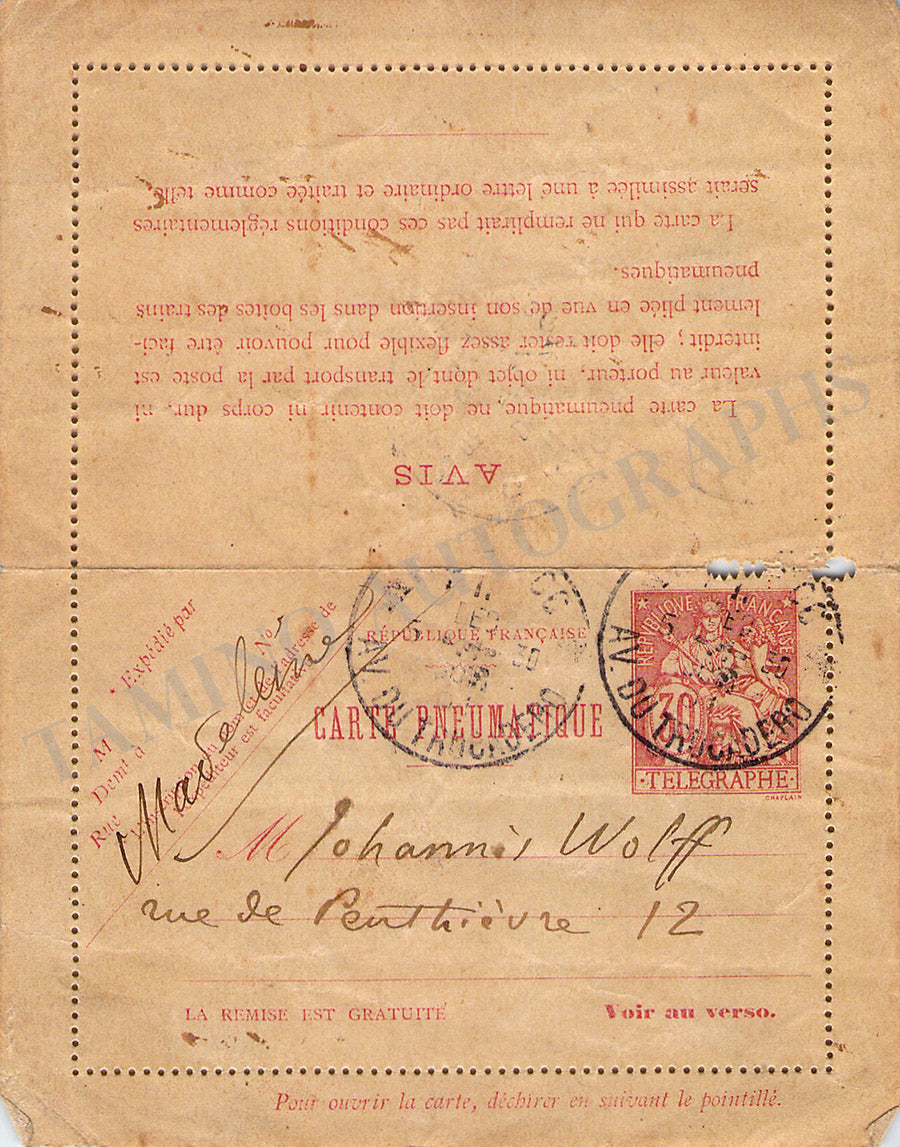 AVIS
La carte pneumatique ne doit contenir ni corps dur, ni
valeur au porteur, ni objet dont le transport par la poste est
interdit ; elle doit rester assez flexible pour pouvoir être faci-
lement pliée en vue de son insertion dans les boîtes des trains
pneumatiques.
La carte qui ne remplirait pas ces conditions réglementaires
serait assimilée à une lettre ordinaire et traitée comme telle
TAMINO AUTOGRAPHS
Expédié par
M
Demt à
Rue No
l'expéditeur est facultative
RÉPUBLIQUE FRANÇAISE
CARTE PNEUMATIQUE
RÉPUBLIQUE FRANÇAISE
30
TELEGRAPHE
CHAPLAIN
AV. DU TROCADERO
AV. DU TROCADERO
Madeleine
M Johannès Wolff
rue de Penthièvre 12
LA REMISE EST GRATUITE
Voir au verso.
Pour ouvrir la carte, déchirer en suivant le pointillé.